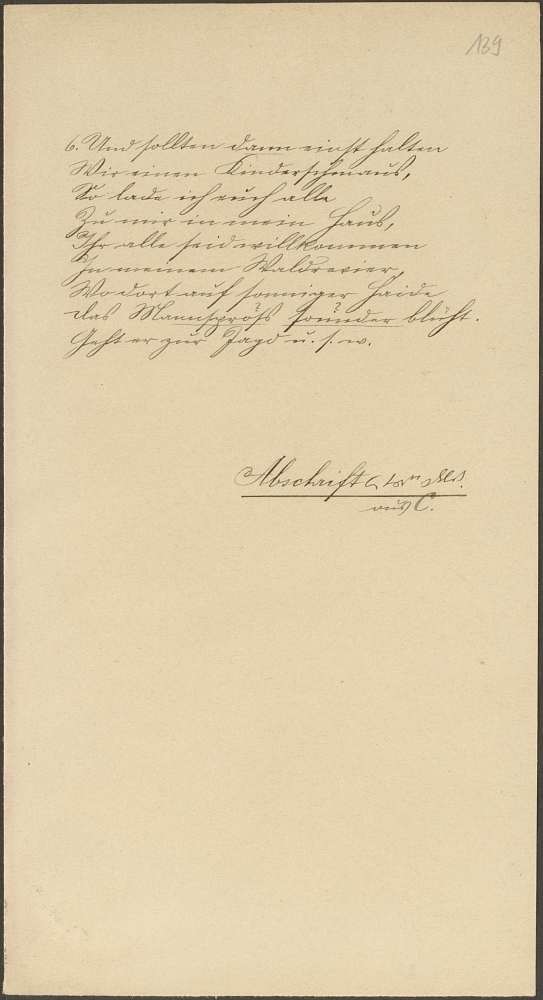 139
6. Und sollten dann einst halten
Wir einen Kinderschmaus,
So lade ich euch alle
Zu mir in mein Haus,
Ihr alle seid willkommen
In meinem Waldrevier,
Wo dort auf sonniger Haide
das Mannsproß sounder blüht.
Geht er zur Jagd u. s. w.
Abschrift
aus C.